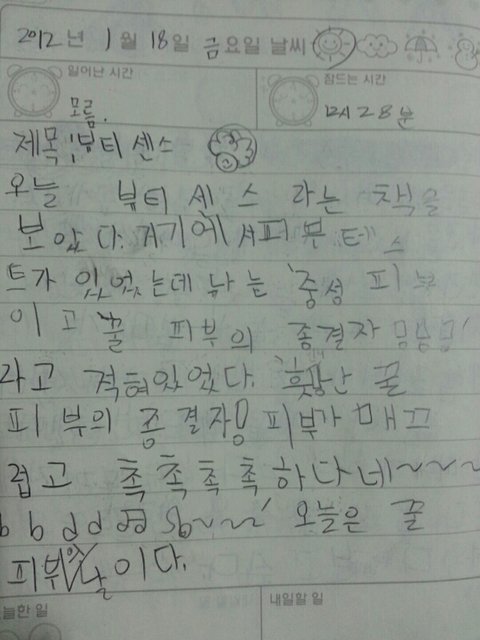 2012년 1월 18일 금요일 날씨
일어난 시간 잠드는 시간
모름. 12시 28분
제목 : 뷰티 센스
오늘 뷰티 센스 라는 책을
보았다. 거기에서 피부 테스
트가 있었는데 나는 '중성 피부
이고 꿀 피부의 종결자
라고 적혀있었다. 난 꿀
피부의 종결자! 피부가 매끄
럽고 촉촉촉촉하다네~~~
오늘은 꿀
피부의 날이다.
늘한 일 내일할 일